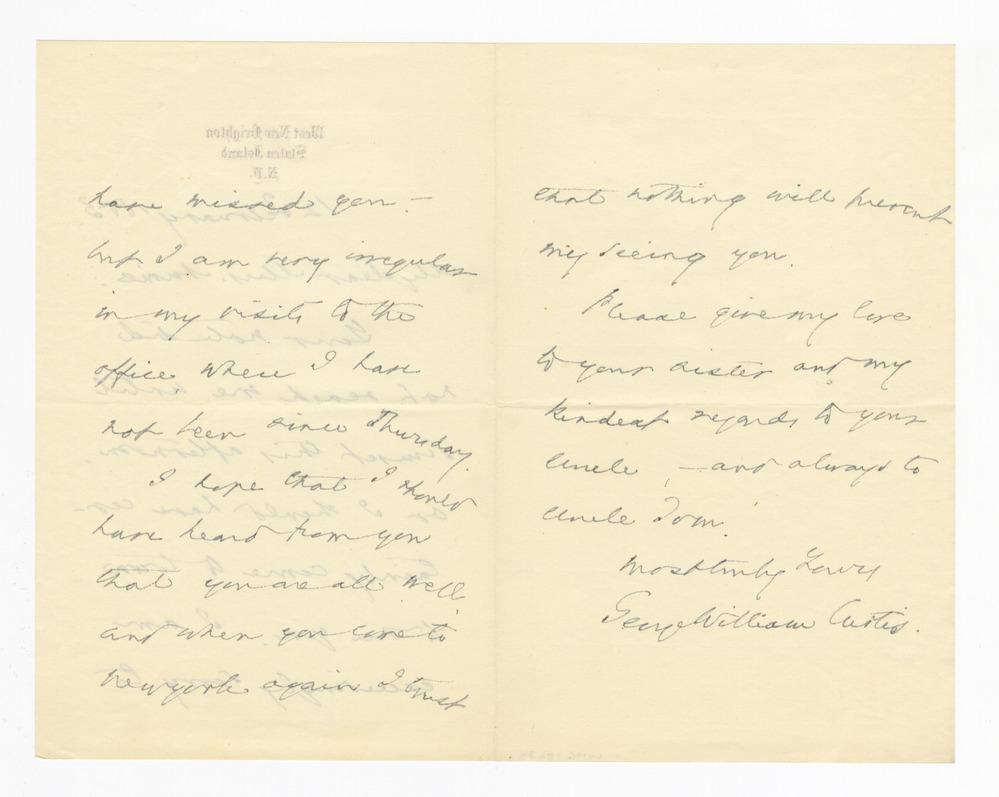 have missed you –
but I am very irregular
in my visits to the
office where I have
not been since Thursday.
I hope that I should
have heard from you
that you are all well
and when you come to
New York again I trust
that nothing will prevent
my seeing you.
Please give my love
to your sister and my
kindest regards to your
uncle, – and always to
Uncle Tom!
Most truly yours
George William Curtis.
West New Brighton
Staten Island
N.Y.